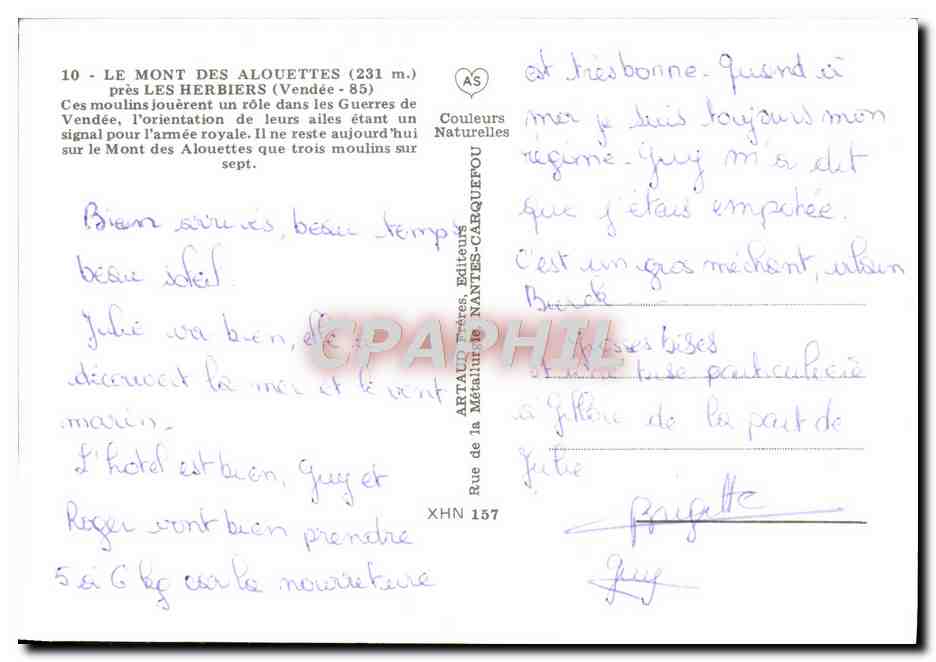 10 - LE MONT DES ALOUETTES (231 m.)
près LES HERBIERS (Vendée - 85)
Ces moulins jouèrent un rôle dans les Guerres de
Vendée, l'orientation de leurs ailes étant un
signal pour l'armée royale. Il ne reste aujourd'hui
sur le Mont des Alouettes que trois moulins sur
sept.
Bien arrivés, beau temps
beau soleil.
Julie va bien, elle
découvert la mer et le vent
marin.
L'hotel est bien, Guy et
Roger vont bien prendre
5 à 6 kg car la nourriture
AS
Couleurs
Naturelles
ARTAUD Frères, Editeurs
Rue de la Métallurgie NANTES-CARQUEFOU
XHN 157
est très bonne. Quand à
mer je suis toujours mon
régime. Guy m'a dit
que j'étais empotée.
C'est un gros méchant,
Grosses bises
et une bise particulière
à de la part de
Julie
Brigitte
Guy
CPAPHIL